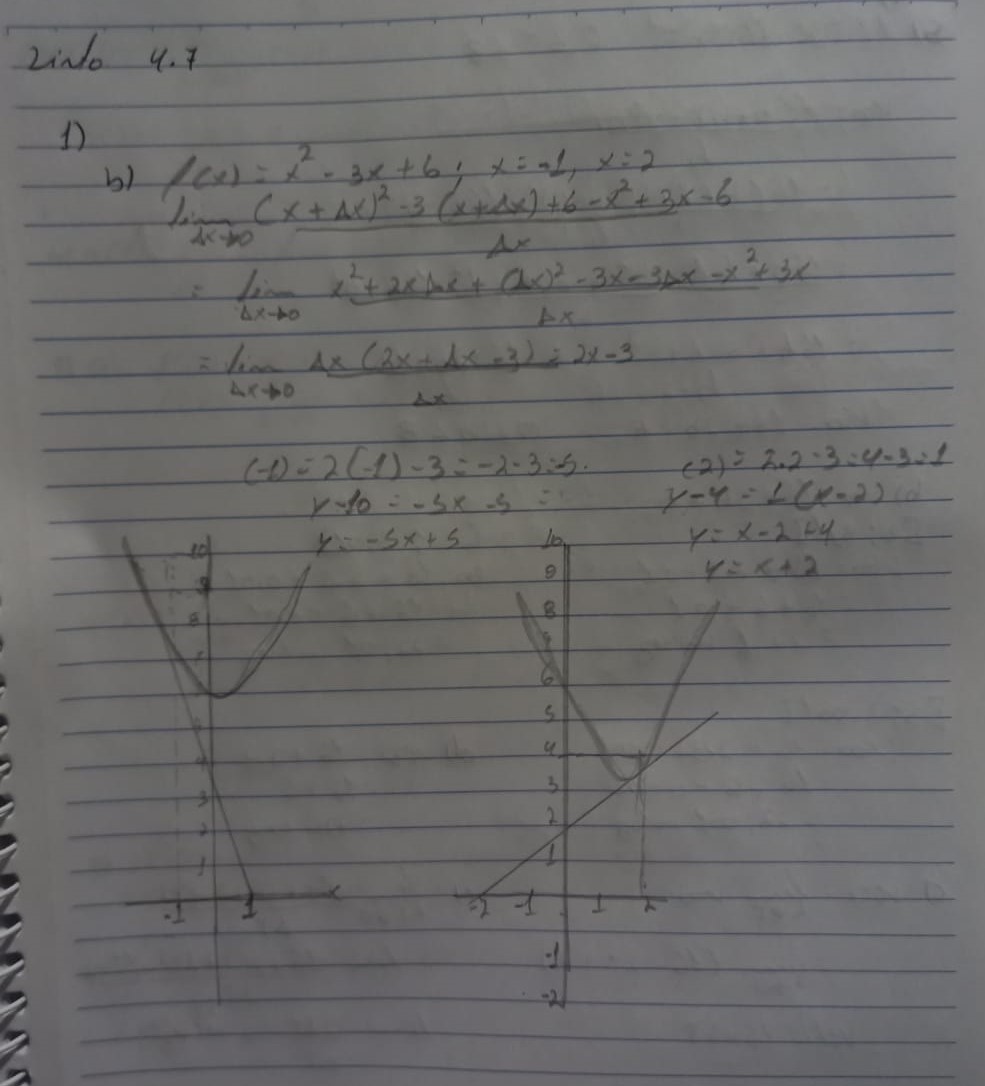 4.7
1)
b) f(x) = x² - 3x + 6; x = -1, x = 2
lim Δx→0 (x + Δx)² - 3(x + Δx) + 6 - x² + 3x - 6
Δx
= lim Δx→0 x² + 2xΔx + (Δx)² - 3x - 3Δx - x² + 3x
Δx
= lim Δx→0 Δx (2x + Δx - 3) = 2x - 3
Δx
(-1) = 2(-1) - 3 = -2 - 3 = -5.
y - 10 = -5x - 5 =
y = -5x + 5
(2) = 2.2 - 3 = 4 - 3 = 1
y - 4 = 1(x - 2)
y = x - 2 + 4
y = x + 2
10
9
8
7
5
4
3
2
1
-1 1 x
10
9
8
7
6
5
4
3
2
1
-2 -1 1 2
-1
-2